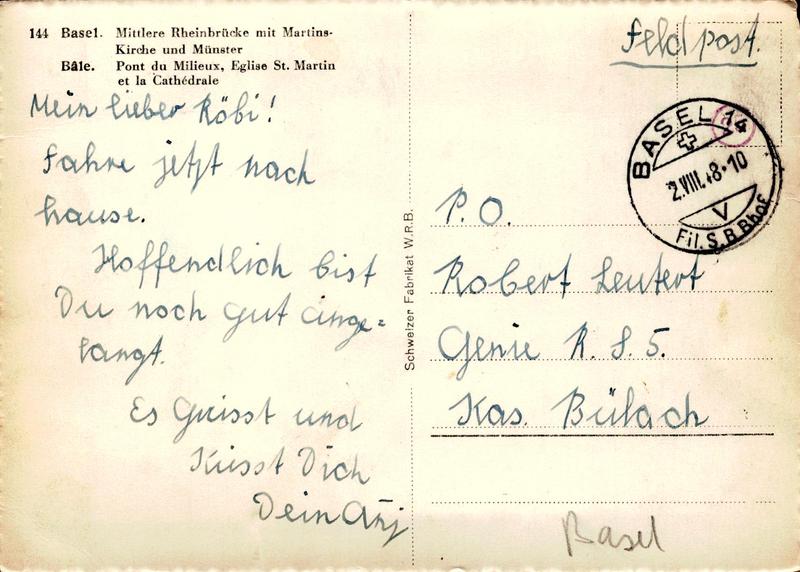 144 Basel. Mittlere Rheinbrücke mit Martins-
Kirche und Münster
Bâle. Pont du Milieux, Eglise St. Martin
et la Cathédrale
Mein lieber Röbi!
Fahre jetzt nach
hause.
Hoffendlich bist
Du noch gut ange=
langt.
Es Grüsst und
Küsst Dich
Dein
Schweizer Fabrikat W.R.B.
Feldpost.
BASEL 14
2.VIII.48·10
V
Fil.S.B.Bhof
P.O.
Robert Leutert
Genie R. S. 5.
Kas. Bülach
Basel